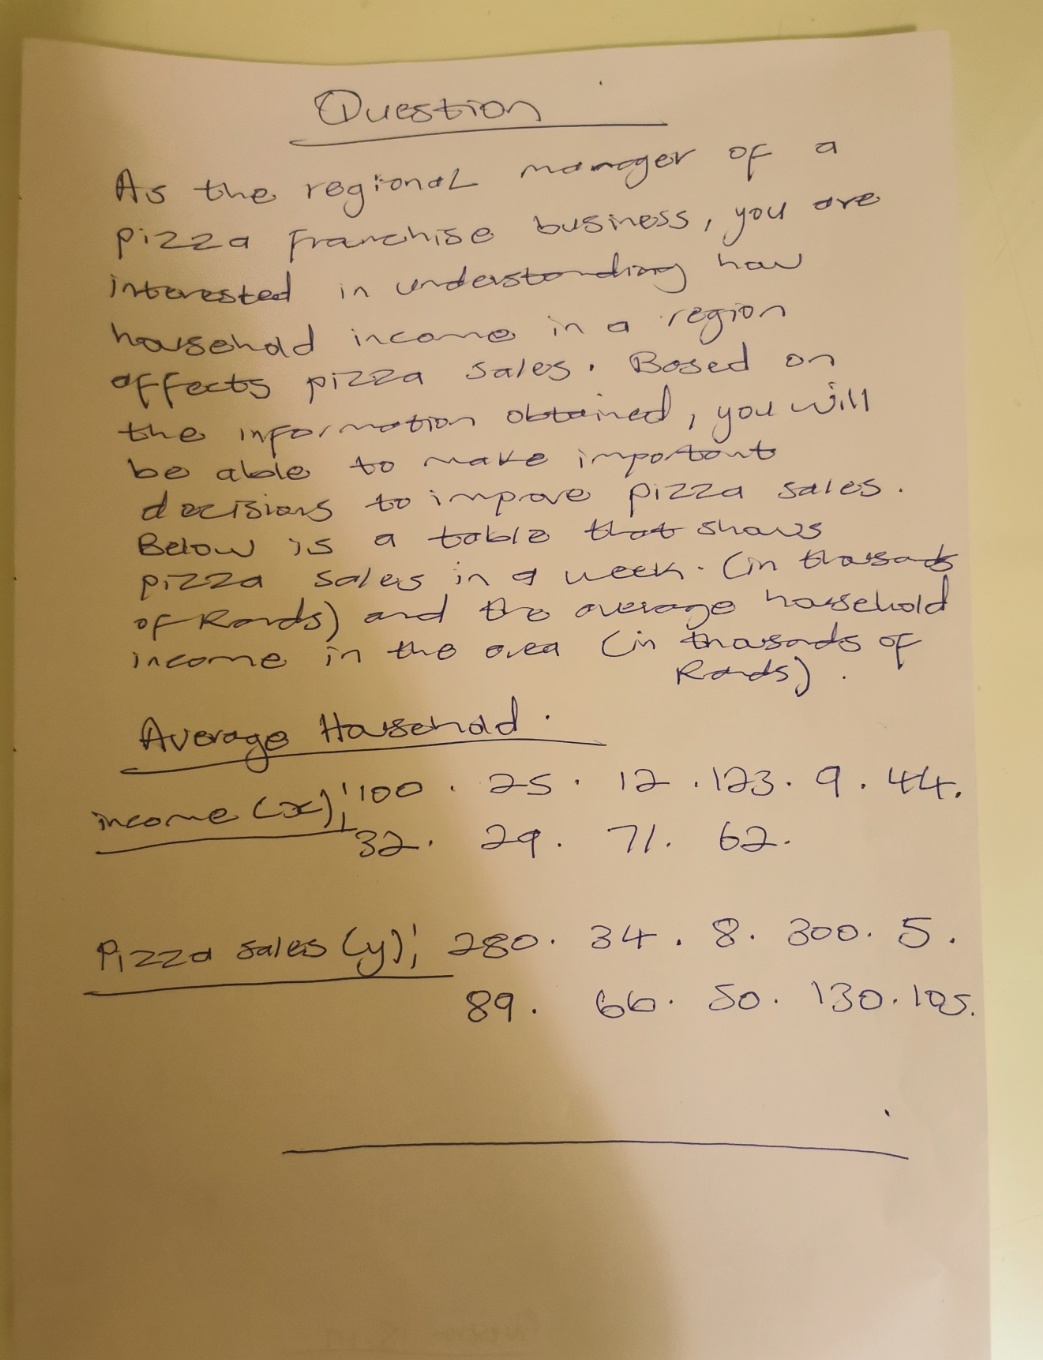 Question
As the regional manager of a
pizza franchise business, you are
interested in understanding how
household income in a region
affects pizza sales. Based on
the information obtained, you will
be able to make important
decisions to improve pizza sales.
Below is a table that shows
pizza sales in a week. (in thousads
of Rands) and the average household
income in the area (in thousads of
Rands).
Average Household.
income (x); 100 . 25 . 12 . 123 . 9 . 44.
32. 29. 71. 62.
Pizza sales (y); 280. 34 . 8. 300. 5 .
89. 66. 50. 130. 105.